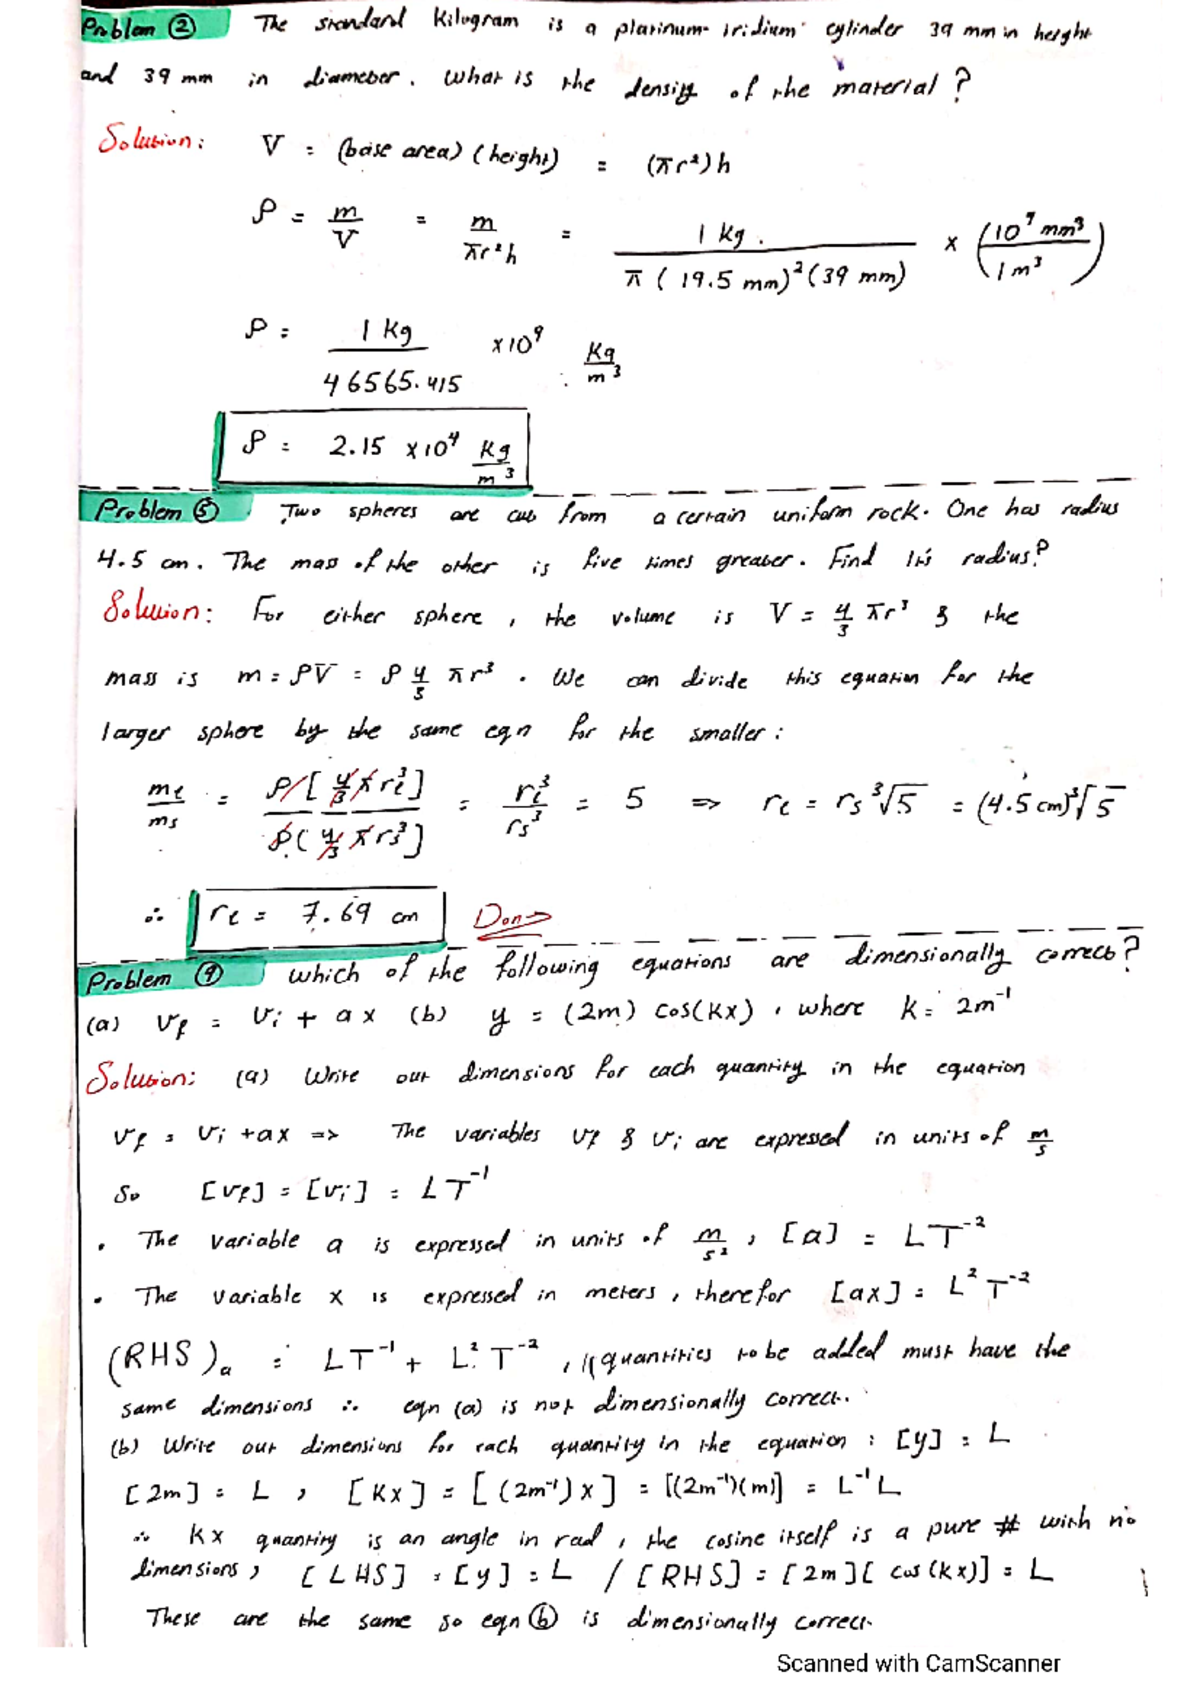 Problem ② The standard Kilogram is a platinum-iridium cylinder 39 mm in height
and 39 mm in diameter. What is the density of the material?
Solution: V = (base area) (height) = (πr²)h
ρ = m/V = m/πr²h = 1 kg. / π (19.5 mm)²(39 mm) × (10⁹ mm³ / 1 m³)
ρ = 1 Kg / 46565.415 ×10⁹ Kg/m³
ρ = 2.15 ×10⁴ Kg/m³
Problem ⑤ Two spheres are cut from a certain uniform rock. One has radius
4.5 cm. The mass of the other is five times greater. Find It's radius?
Solution: For either sphere, the volume is V = 4/3 πr³ & the
mass is m = ρV = ρ 4/3 πr³. We can divide this equation for the
larger sphere by the same eqn for the smaller:
mℓ/ms = ρ/[4/3 π rℓ³] / ρ(4/3 π rs³) = rℓ³/rs³ = 5 => rℓ = rs ³√5 = (4.5 cm)³√5
∴ rℓ = 7.69 cm Done
Problem ⑨ which of the following equations are dimensionally correct?
(a) vf = vi + ax (b) y = (2m) cos(kx), where k = 2m⁻¹
Solution: (a) Write out dimensions for each quantity in the equation
vf = vi +ax => The variables vf & vi are expressed in units of m/s
So [vf] = [vi] = LT⁻¹
• The variable a is expressed in units of m/s², [a] = LT⁻²
• The variable x is expressed in meters, therefor [ax] = L²T⁻²
(RHS)a = LT⁻¹ + L²T⁻², quantities to be added must have the
same dimensions ∴ eqn (a) is not dimensionally correct.
(b) Write out dimensions for each quantity in the equation: [y] = L
[2m] = L, [kx] = [(2m⁻¹)x] = [(2m⁻¹)(m)] = L⁻¹L
∴ kx quantity is an angle in rad, the cosine itself is a pure # with no
dimensions, [LHS] = [y] = L / [RHS] = [2m][cos(kx)] = L
These are the same so eqn ⓑ is dimensionally correct.
Scanned with CamScanner